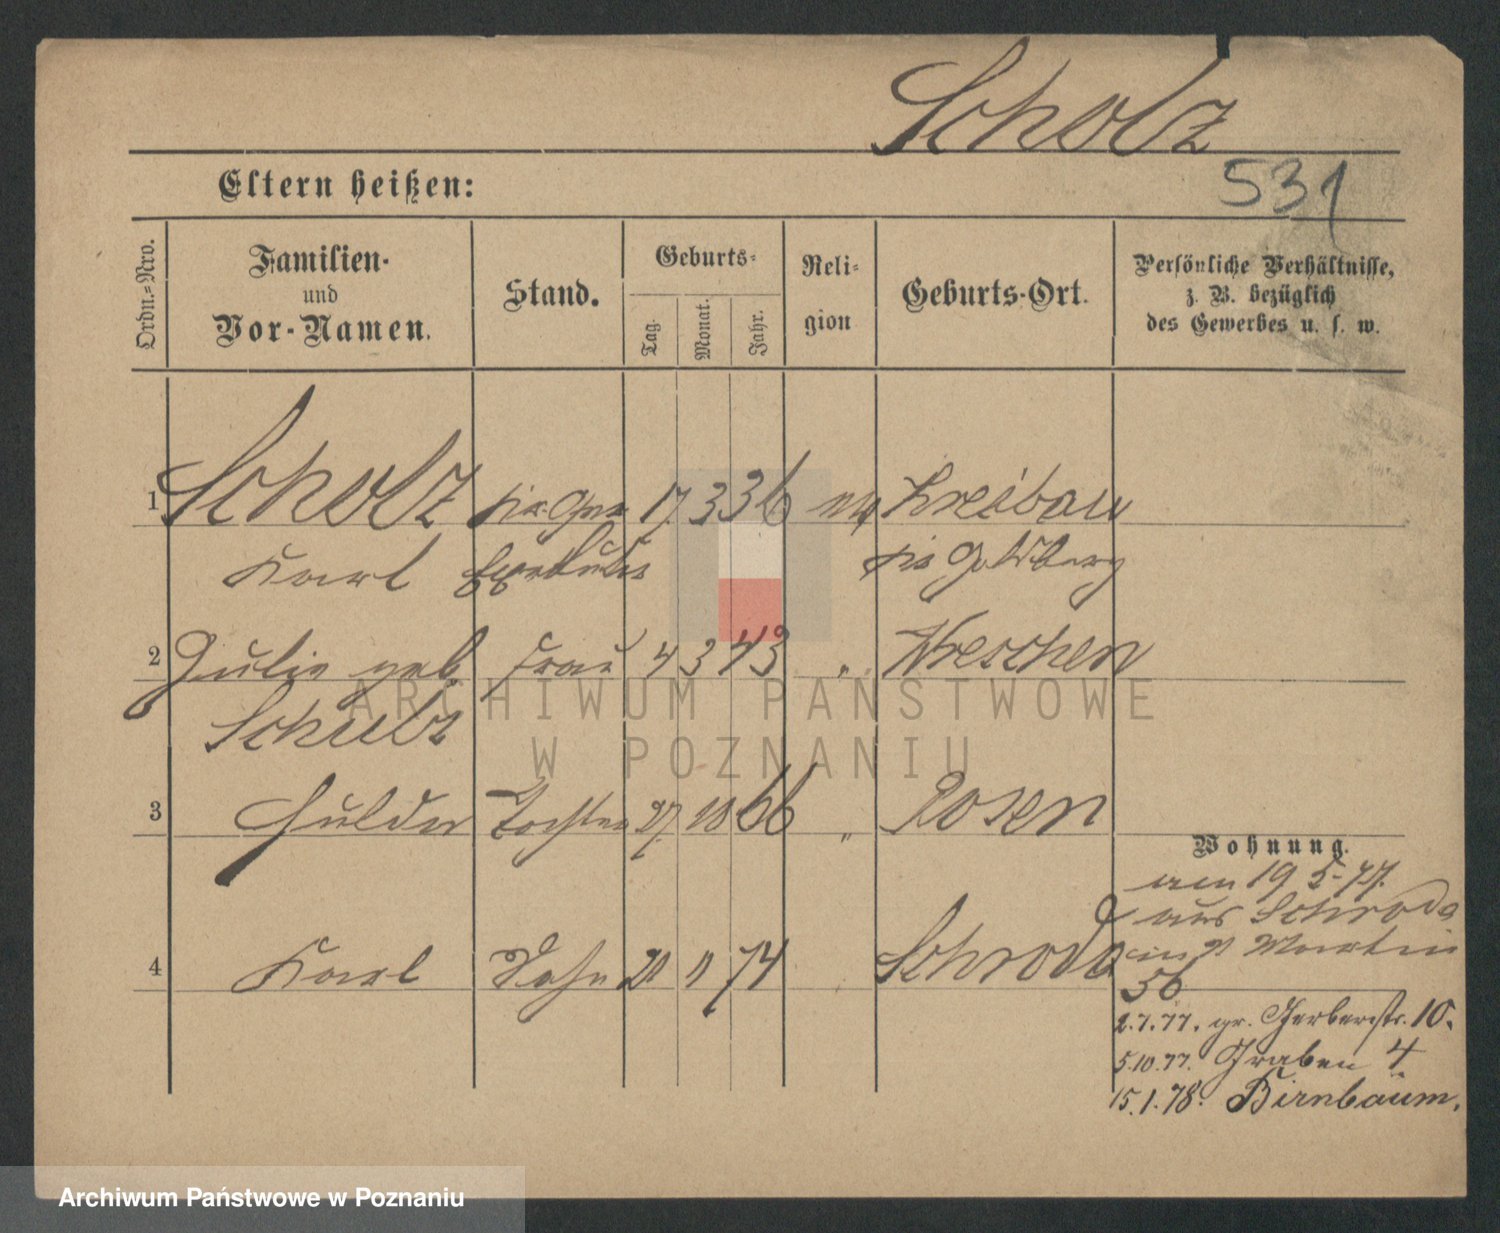 Scholz
531
Eltern heißen:
Ordn.-Nro.
Familien-
und
Vor-Namen.
Stand.
Geburts-
Tag.
Monat.
Jahr.
Reli-
gion
Geburts-Ort.
Persönliche Verhältnisse,
z. B. bezüglich
des Gewerbes u. s. w.
1 Scholz 17. 3 36 Kreibau
Karl
2 Julie geb. Frau 4 3 43 " Wreschen
Schulz
ARCHIWUM PAŃSTWOWE
W POZNANIU
3 Hulda Tochter 27. 10 66 " Posen
Wohnung.
am 19 5. 77.
aus Schroda
4 Karl Sohn 20 11 74 Schroda Martin
56
2.7.77. gr. Gerberstr. 10.
5.10.77. Graben 4
15.1.78. Birnbaum.
Archiwum Państwowe w Poznaniu